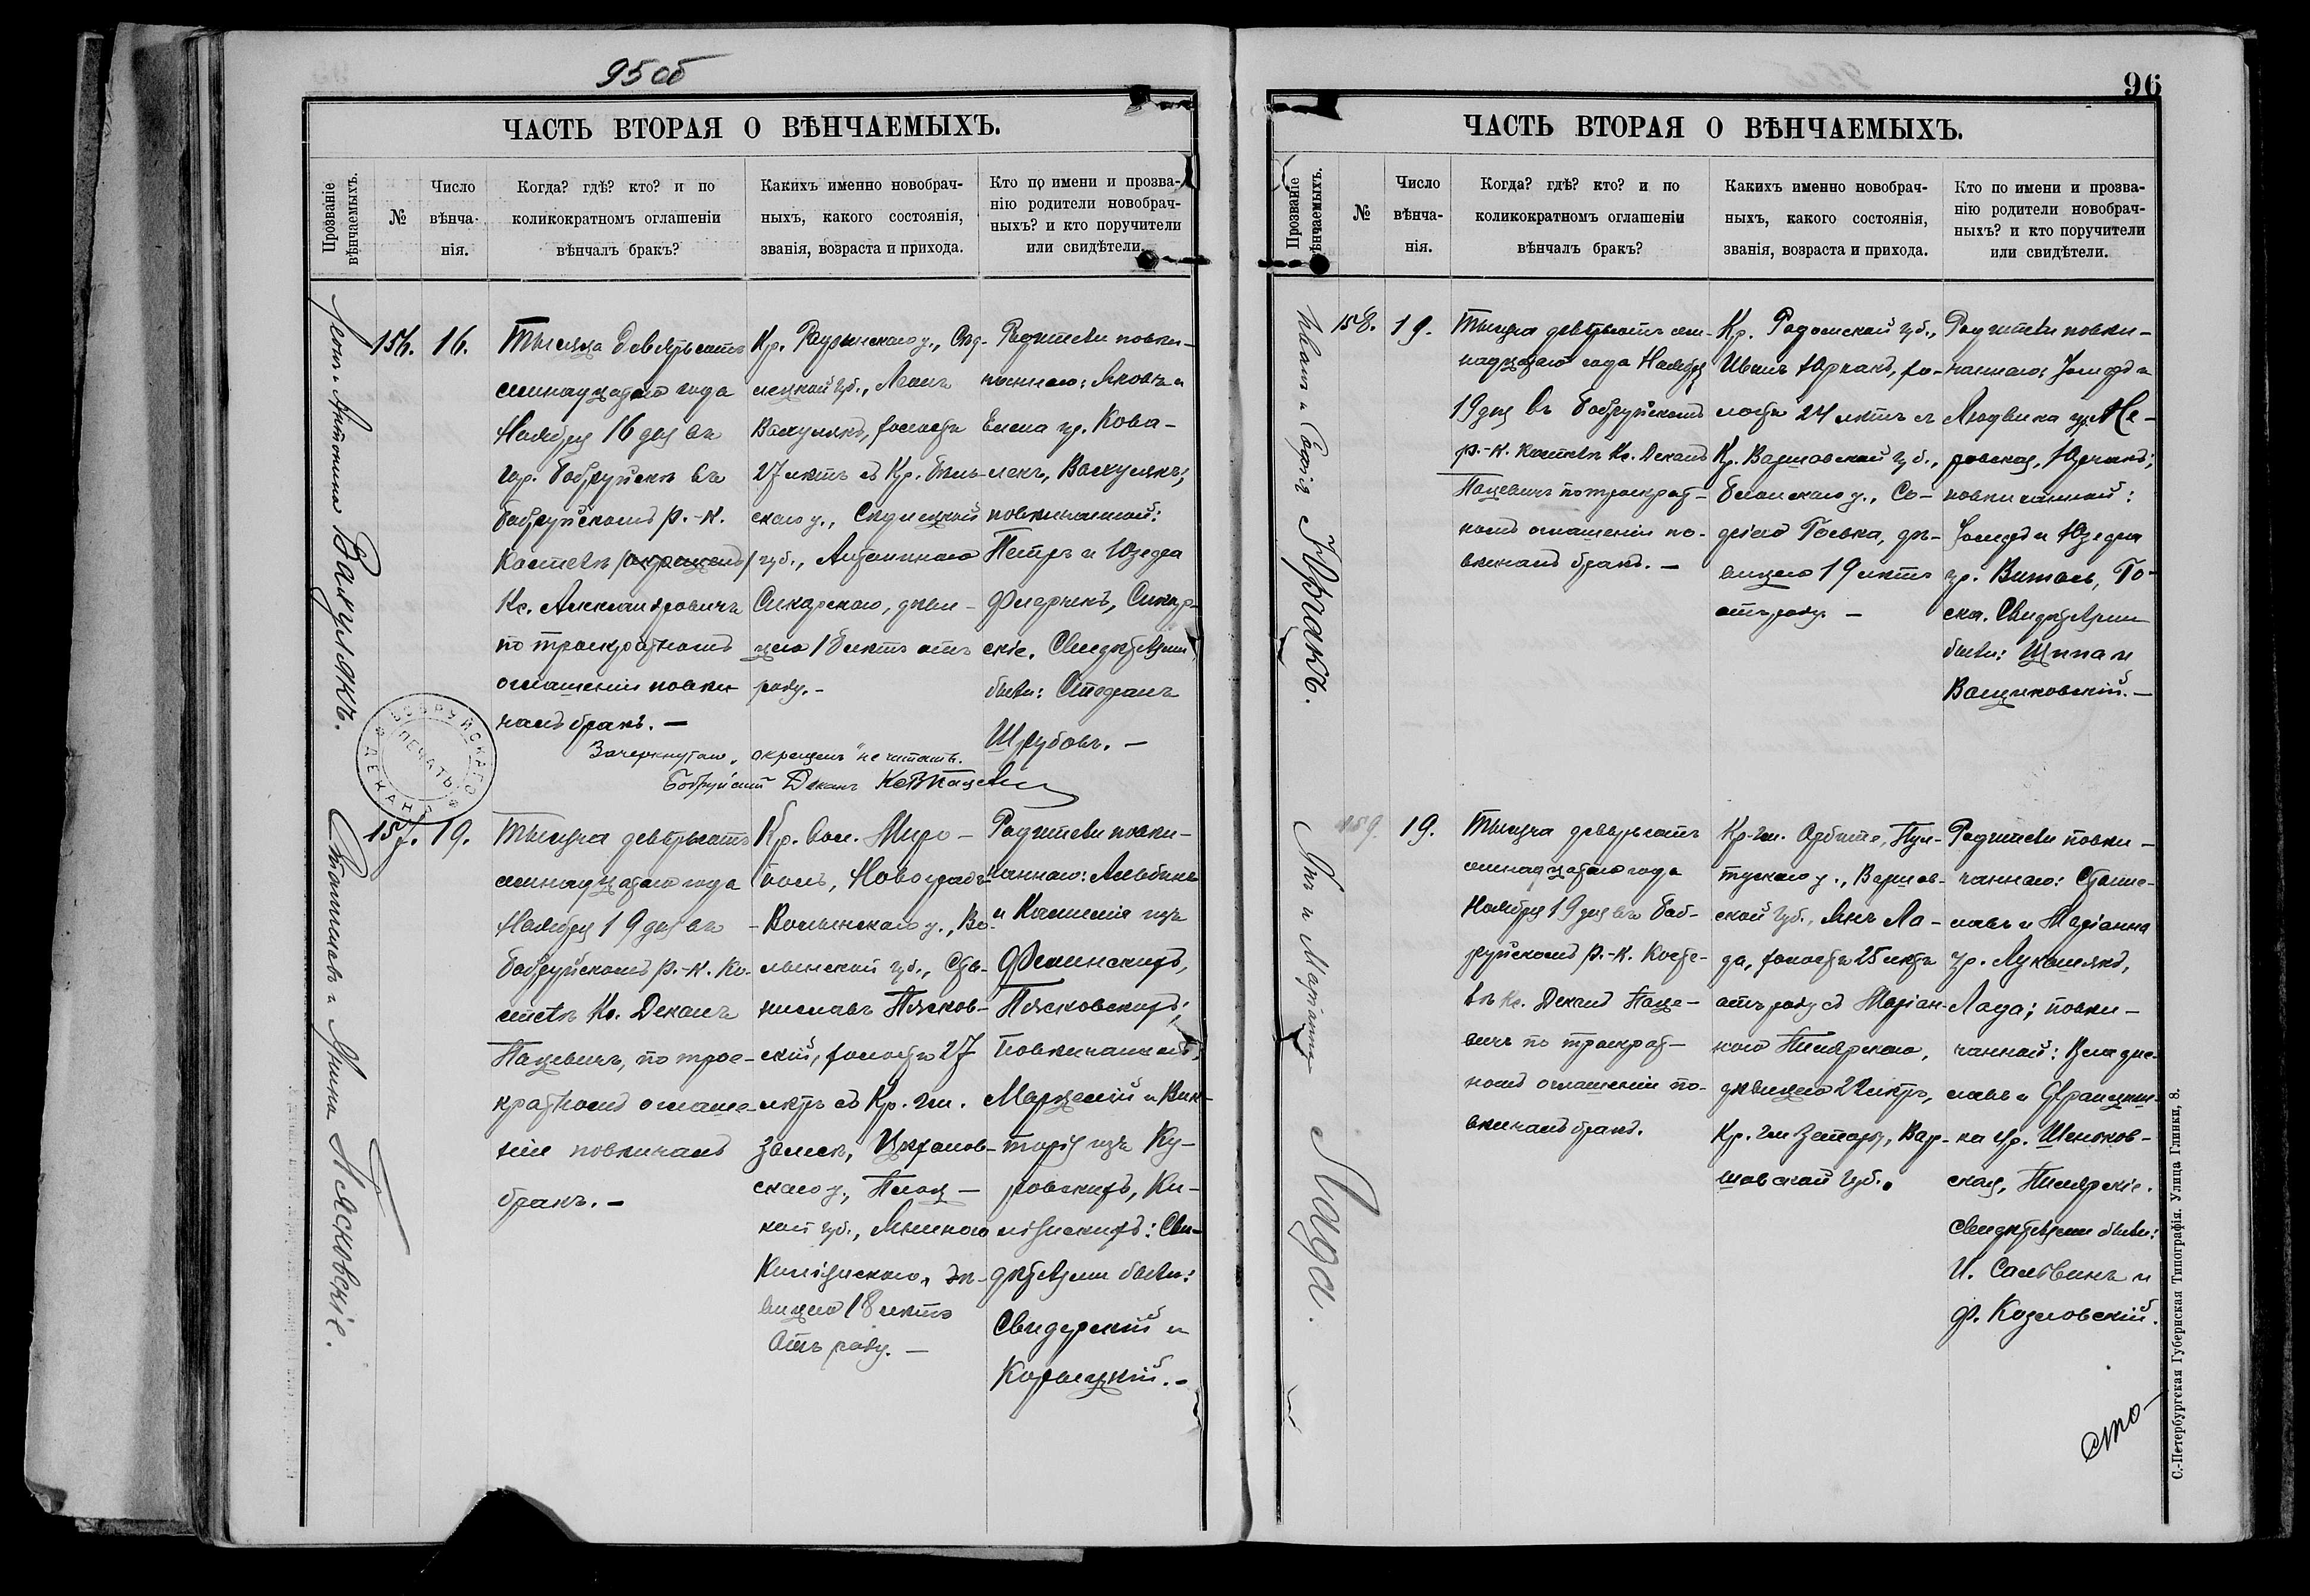 95 об
ЧАСТЬ ВТОРАЯ О ВѢНЧАЕМЫХЪ.
Прозваніе
вѣнчаемыхъ.
№
Число
вѣнча-
нія.
Когда? гдѣ? кто? и по
коликократномъ оглашеніи
вѣнчалъ бракъ?
Какихъ именно новобрач-
ныхъ, какого состоянія,
званія, возраста и прихода.
Кто по имени и прозва-
нію родители новобрач-
ныхъ? и кто поручители
или свидѣтели.
Леонъ и Антонина Вакулякъ.
156.
16.
Тысяча девятьсотъ
семнадцатого года
Ноября 16 дня въ
гор. Бобруйскѣ въ
Бобруйскомъ Р.-К.
Костелѣ
Кс. Александровичъ
по троекратномъ
оглашеніи повѣн-
чалъ бракъ. —
Кр. у., Сѣд-
лецкой губ., Леонъ
Вакулякъ, холостъ
27 лѣтъ съ Кр. Бѣль-
скаго у., Сѣдлецкой
губ., Антониною
Сикорскою, дѣви-
цею 18 лѣтъ отъ
роду. -
Родители повѣн-
чаннаго: Яковъ и
Елена ур. Кова-
лекъ, Вакулякъ;
повѣнчанной:
Петръ и Юзефа
Сикор-
скіе. Свидѣтели
были: Стефанъ
Шрубовъ. —
Зачеркнутаго „окрещенъ" не читать.
Бобруйскій Деканъ Кс В Пацевичъ
ПЕЧАТЬ БОБРУЙСКАГО ДЕКАНА
Станиславъ и Янина Пясковскіе.
157.
19.
Тысяча девятьсотъ
семнадцатого года
Ноября 19 дня въ
Бобруйскомъ Р.-К. Ко-
стелѣ Кс. Деканъ
Пацевичъ, по трое-
кратномъ оглаше-
ніи повѣнчалъ
бракъ. —
Кр. вол. Миро-
поль, Новоградъ-
Волынскаго у., Во-
лынской губ., Ста-
ниславъ Пясков-
скій, холостъ 27
лѣтъ съ Кр. гм.
Цѣханов-
скаго у., Плоц-
кой губ., Яниною
дѣ-
вицею 18 лѣтъ
отъ роду. —
Родители повѣн-
чаннаго: Альбинъ
и Камилія изъ
Пясковскихъ;
повѣнчанной:
Марцелій и Вик-
торія изъ Ку-
ровскихъ, Ки-
Сви-
дѣтели были:
Свидерскій и
Корыцкій. -
96
ЧАСТЬ ВТОРАЯ О ВѢНЧАЕМЫХЪ.
Прозваніе
вѣнчаемыхъ.
№
Число
вѣнча-
нія.
Когда? гдѣ? кто? и по
коликократномъ оглашеніи
вѣнчалъ бракъ?
Какихъ именно новобрач-
ныхъ, какого состоянія,
званія, возраста и прихода.
Кто по имени и прозва-
нію родители новобрач-
ныхъ? и кто поручители
или свидѣтели.
Иванъ и Софія Юрчакъ.
158.
19.
Тысяча девятьсотъ сем-
надцатого года Ноября
19 дня въ Бобруйскомъ
Р.-К. Костелѣ Кс. Деканъ
Пацевичъ по троекрат-
номъ оглашеніи по-
вѣнчалъ бракъ. —
Кр. Радомской губ.,
Иванъ Юрчакъ, хо-
лостъ 24 лѣтъ съ
Кр. Варшавской губ.,
у., Со-
фіею Госька, дѣ-
вицею 19 лѣтъ
отъ роду. —
Родители повѣн-
чаннаго: Іосифъ и
Людвика ур. Не-
ровская, Юрчакъ;
повѣнчанной:
Іосифъ и Юзефа
ур. Виталь, Го-
ска. Свидѣтели
были: Щипа и
Ващиковскій. —
Янъ и Маріанна Лада.
159.
19.
Тысяча девятьсотъ
семнадцатого года
Ноября 19 дня въ Боб-
руйскомъ Р.-К. Косте-
лѣ Кс. Деканъ Паце-
вичъ по троекрат-
номъ оглашеніи по-
вѣнчалъ бракъ.
Кр. гм. Пул-
тускаго у., Варшав-
ской губ., Янъ Ла-
да, холостъ 25 лѣтъ
отъ роду съ Маріан-
ною Писярскою,
дѣвицею 22 лѣтъ,
Кр. гм Зегаржъ, Вар-
шавской губ..
Родители повѣн-
чаннаго: Стани-
славъ и Маріанна
ур. Лукашякъ,
Лада; повѣн-
чанной: Влади-
славъ и Францишк-
ка ур. Шенков-
ская, Писярскіе.
Свидѣтели были:
И. Сальвинъ и
Ф. Козловскій.
сто-
С.-Петербургская Губернская Типографія. Улица Глинки, 8.